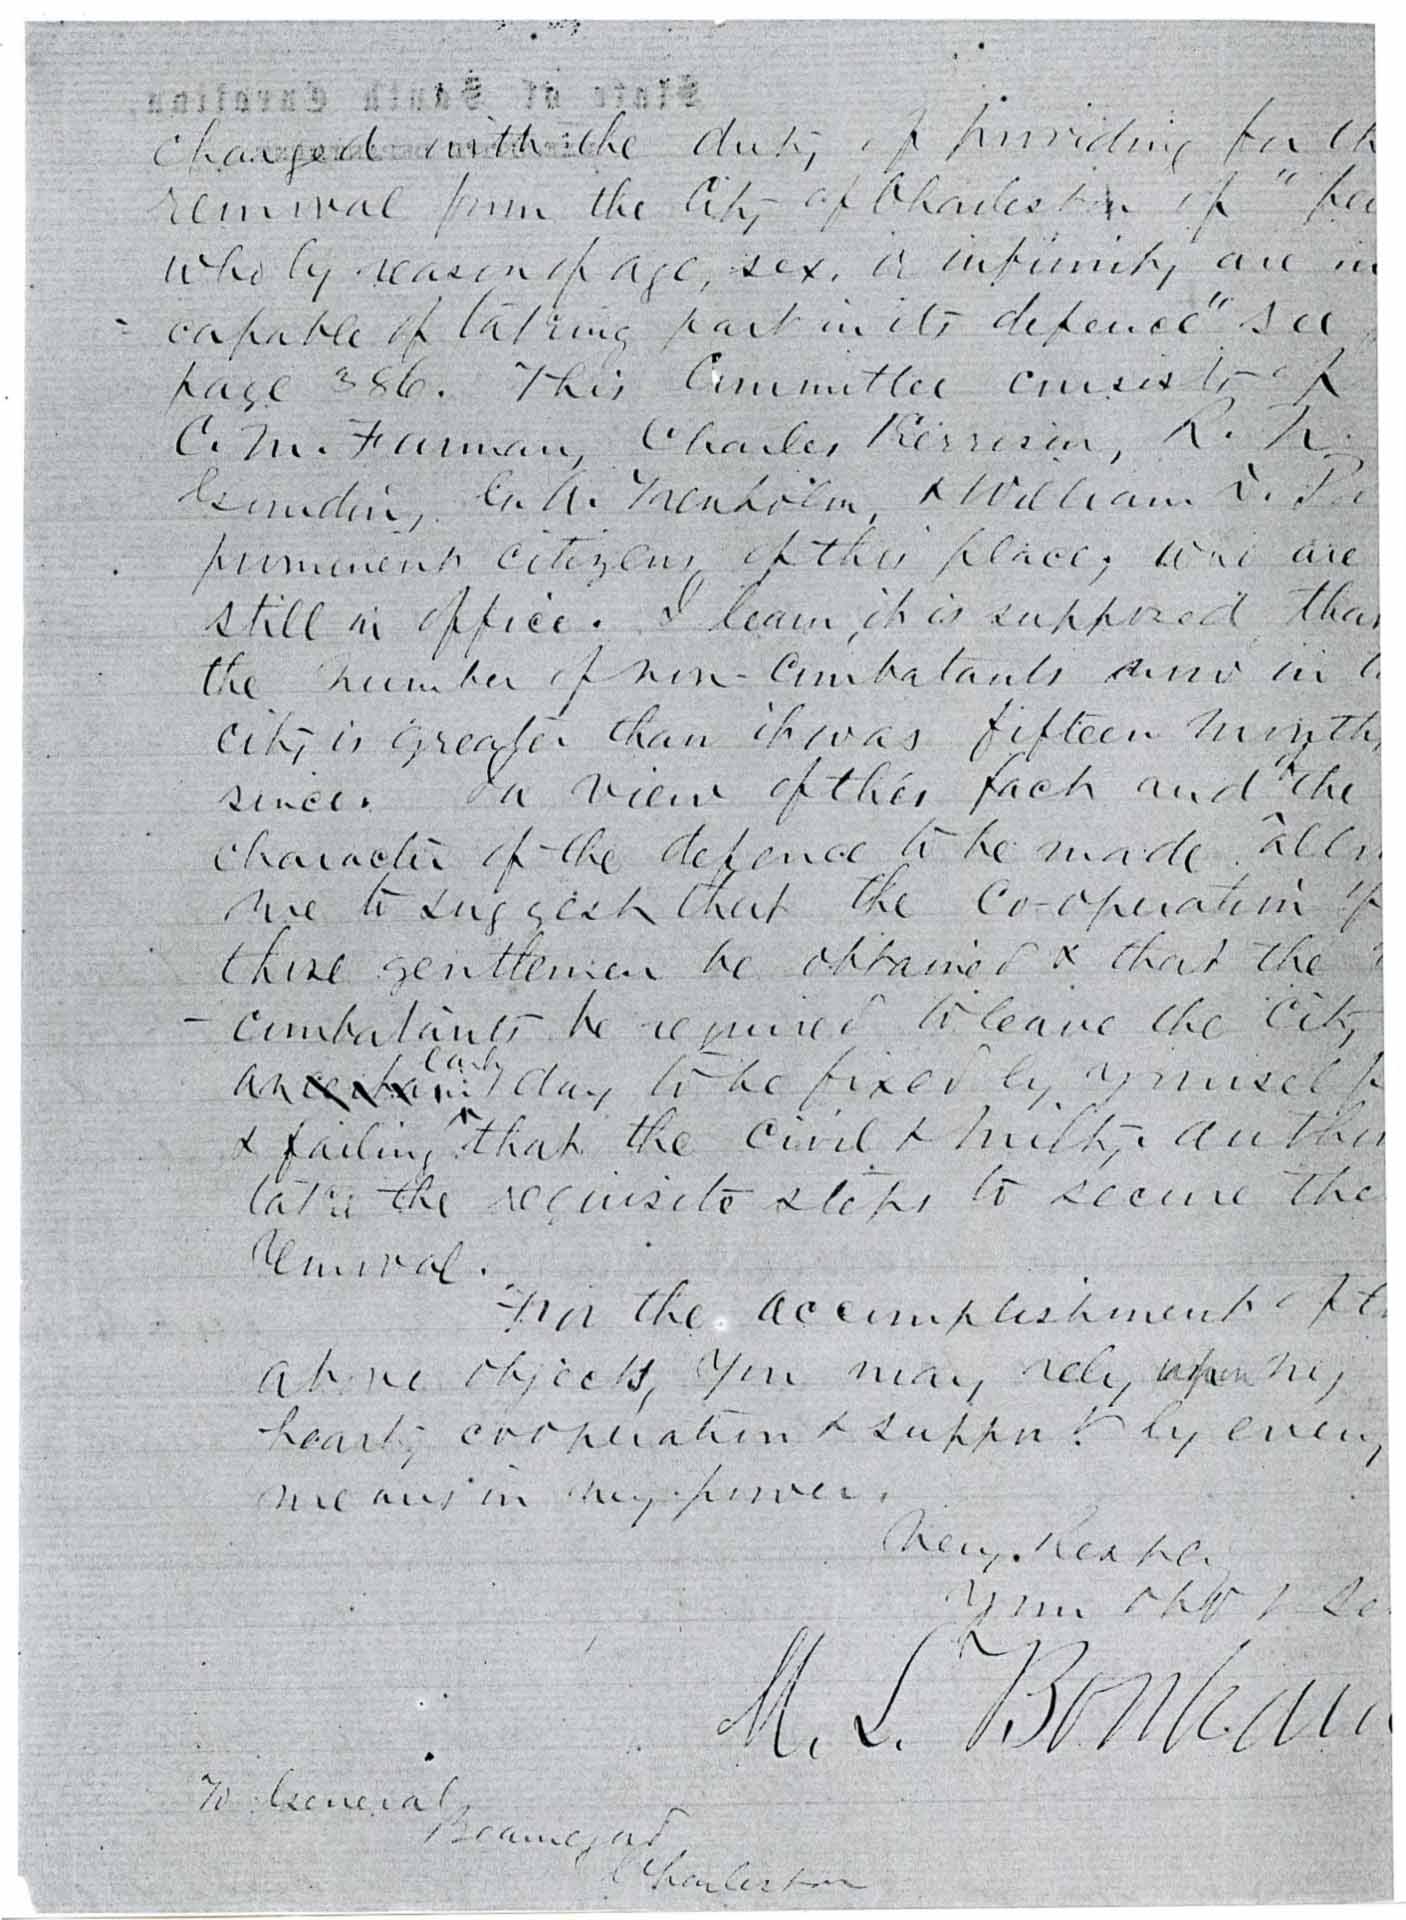 State of South Carolina,
charged with the duty of providing for th
removal from the City of Charleston of "per
who by reason of age, sex, or infirmity are in
capable of taking part in its defence" see
page 386. This Committee consists of
C. M. Furman, Charles Kerrison, R. N.
Gourdin, G. A. Trenholm, & William D. Po
prominent citizens of this place, who are
still in office. I learn, it is supposed that
the number of non-combatants now in t
city is greater than it was fifteen months
since. In view of this fact and of the
character of the defence to be made allow
me to suggest that the co-operation of
these gentlemen be obtained & that the
combatants be required to leave the City
an certain early day to be fixed by yourself
& failing that the civil & milty. author
take the requisite steps to secure the
removal.
For the accomplishment of th
above objects, you may rely upon my
hearty cooperation & support by every
means in my power.
Very Respec.
Your obt Se
M. L. Bonham
To General
Beauregard
Charleston